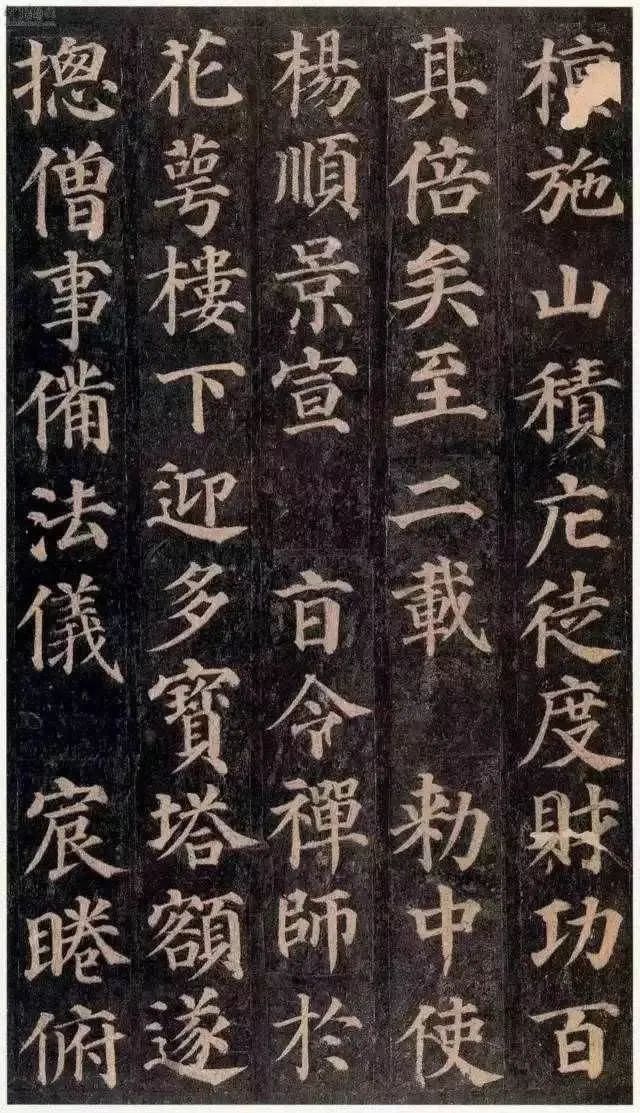 檀施山積庀徒度財功百
其倍矣至二載 勅中使
楊順景宣 旨令禪師於
花萼樓下迎多寶塔額遂
摠僧事備法儀 宸睠俯